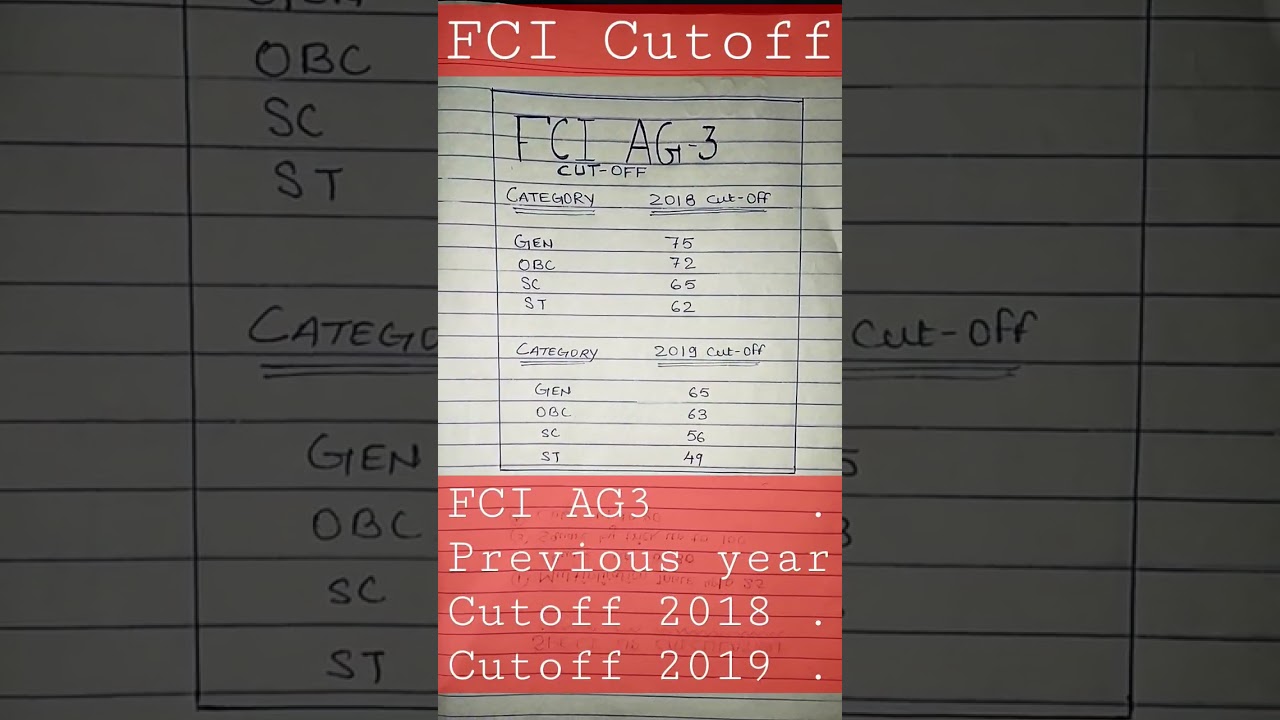 FCI Cutoff
FCI AG-3
CUT-OFF
CATEGORY 2018 Cut-Off
GEN 75
OBC 72
SC 65
ST 62
CATEGORY 2019 Cut-Off
GEN 65
OBC 63
SC 56
ST 49
FCI AG3 .
Previous year
Cutoff 2018 .
Cutoff 2019 .
OBC
SC
ST
Cut-Off
GEN
OBC
SC
ST